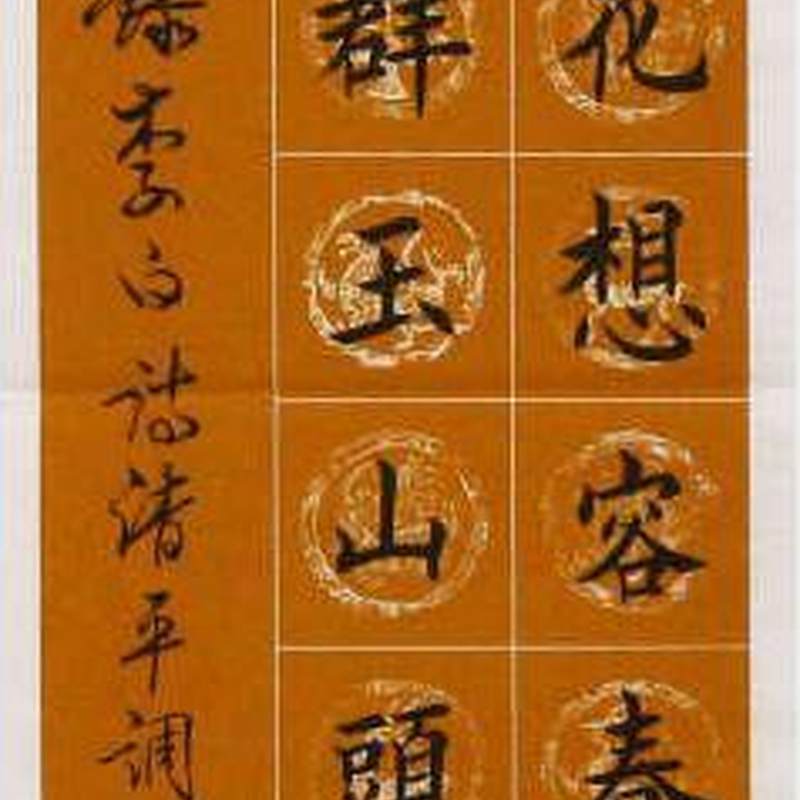 花想容春
群玉山頭
錄李白詩清平調